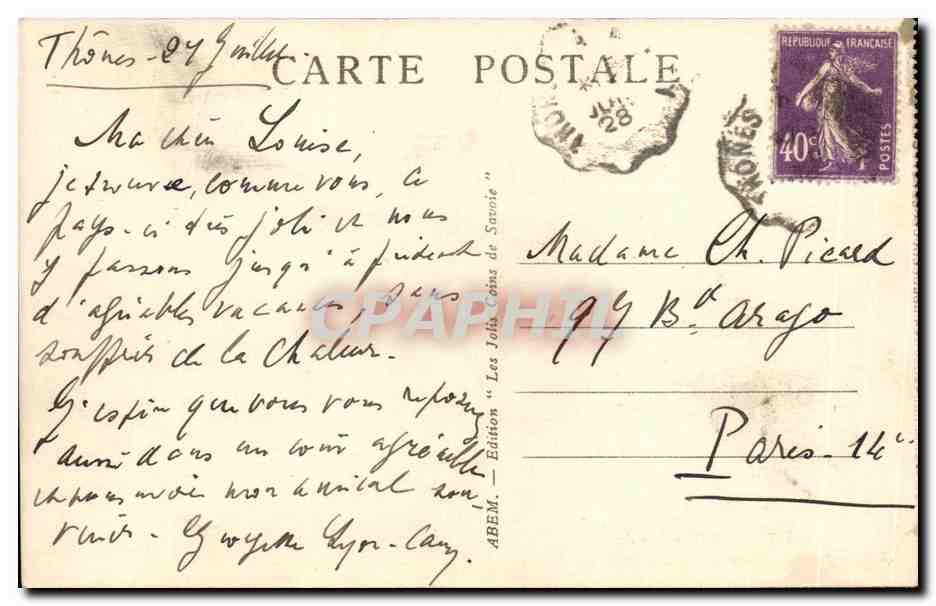 Thônes - 27 Juillet
CARTE POSTALE
THÔNES
28
THÔNES
REPUBLIQUE FRANÇAISE
40c
POSTES
Ma chère Louise,
je trouve, comme vous, ce
pays-ci très joli et nous
y passons jusqu'à présent
d'agréables vacances, sans
souffrir de la chaleur.
J'espère que vous vous reposez
aussi dans un coin agréable
et vous envoie mon amical sou-
venir - Georgette Lyon-Caen.
ABEM. — Edition " Les Jolis Coins de Savoie "
Madame Ch. Picard
97 Bd Arago
Paris - 14e
CPAPHIL